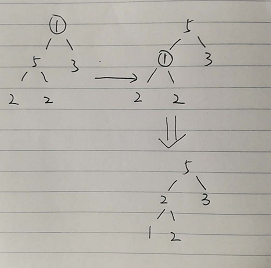 ①
5 3
2 2
5
① 3
2 2
5
2 3
1 2